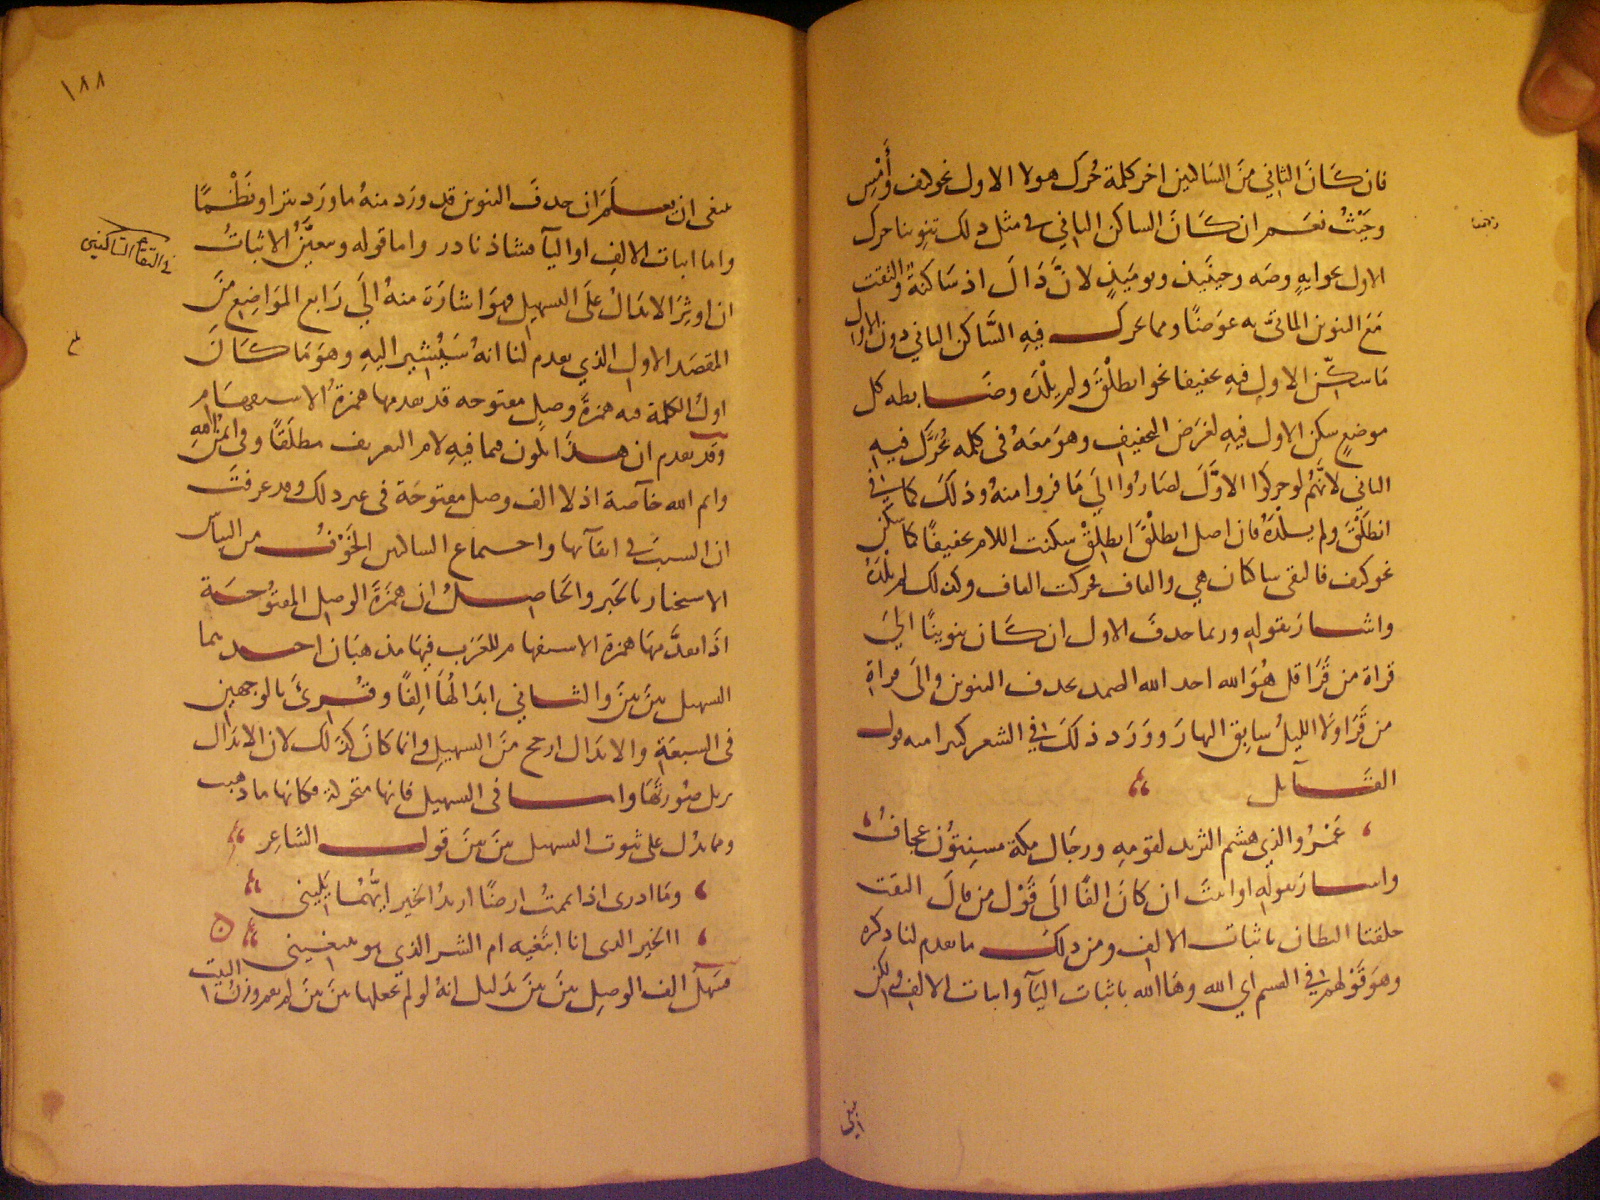 فان كَانَ الثاني منَ الساكنين اخر كلمة حُرك هو لا الاول نحو كيف وأَمْسِ
وحَيْثُ نعَم ان كَانَ الساكن الثاني في مثل ذلك تنوينا حرك
الاول نحو ايهٍ وصَه وحينَيذٍ ويوميَذٍ لانَّ ذَالَ اذ سَاكنةٌ والتقت
مَعَ التنوين الماتىّ به عوَضًا ومما يحرك فيهِ السَّاكن الثاني دون الاول
مَا سكّنَ الاول فيهِ تخفيفا نحو انطلْقَ ولم يلْدَه وضَابطه كل
موضعٍ سكن الاول فيهِ لغرَض التخفيف وهوَ معَهُ في كلمه يُحرَّك فيهِ
الثاني لانَّهُم لو حركوا الاوَّلَ لصَارُوا الَي مَا فروا منهُ وذلكَ كما في
انطَلْقَ ولم يلْدَهُ فان اصل انطلْقَ انطلِقْ سكنت اللام تخفيفًا كما سكّن
نحو كتف فالتقى ساكنان هي والقاف فحركت القاف وكذلك لم يلْدَهُ
واشار بقولهِ وربما حذفَ الاول ان كَان تنوينًا اليَ
قراة من قَرَا قل هُوَ الله احد الله الصمد بحذف التنوين والَى قراةِ
من قَرَا ولَا الليلُ سابق النهارَ ووَرَد ذلكَ في الشعر كثيرا منه قول
القَائل
عَمْرُو الذي هشم الثريد لقومهِ ورجَال مكة مسنِتُون عجافُ
واشار بقولهِ او اثبتَ ان كانَ الفًا الَى قَوْل من قالَ التقت
حلقتا البطان باثبات الالف ومن ذلكَ ما تقدم لنا ذكره
وهوَ قَوْلهم في القسم اي الله وهَا الله باثبات اليآ واثبات الالف ولكن
١٨٨
ينبغى ان يعلَم ان حذفَ التنوين قد ورَد منهُ ما ورَد نثرا ونَظْمًا
واما اثبات الالف او اليآ فشاذ نادر واما قوله ويتعيَّنُ الاثباتُ
في التقاء الساكنين
ان اوثِرَ الابدَالُ علَى التسهيل فهوَ اشارَة منهُ الَي رَابع الموَاضع منَ
المقصَد الاول الذي تقدم لنا انهُ سَيُشير اليهِ وهوَ مَا كَانَ
اول الكلمة فيه همزةَ وصلٍ مفتوحه قد تقدمها همزةُ الاستفهَام
وقد تقدم ان هذَا يكون فيما فيهِ لام التعريف مطلَقًا وفي ايمن الله
وايم الله خآصة اذ لا الف وصل مفتوحَة في غير ذلك وقد عرفتَ
ان السببَ في ابقآئها واجتماع الساكنين الخَوْفُ من التباس
الاستخبار بالخبر والحَاصلُ ان همَزَةَ الوصل المفتوُحَة
اذَا تقدَّمهَا همزة الاستفهام للعَرَب فيهَا مذهبَان احدهما
التسهيل بَيْنَ بَيْنَ والثاني ابدَالُهَا اَلِفًا وقُرِئَ بالوجهين
في السبعَة والابدَال ارجح منَ التسهيل وانما كانَ كذلك لان الابدَال
يزيل صُورتَهَا واما في التسهيل فانها متحركة فكانها ما ذهبت
ومما يدُل على ثبوت التسهيل بينَ بينَ قول الشاعر
ومَا ادرى اذا يممتُ ارضًا اريدُ الخَير ايَّهُمَا يَلينى
االخير الذى انا ابتَغيه ام الشر الذي هو يبتغينى
فسَهّلَ الف الوصل بينَ بينَ بدَليل انهُ لو لم يجعلها بينَ بينَ لم يقم وزن البيت